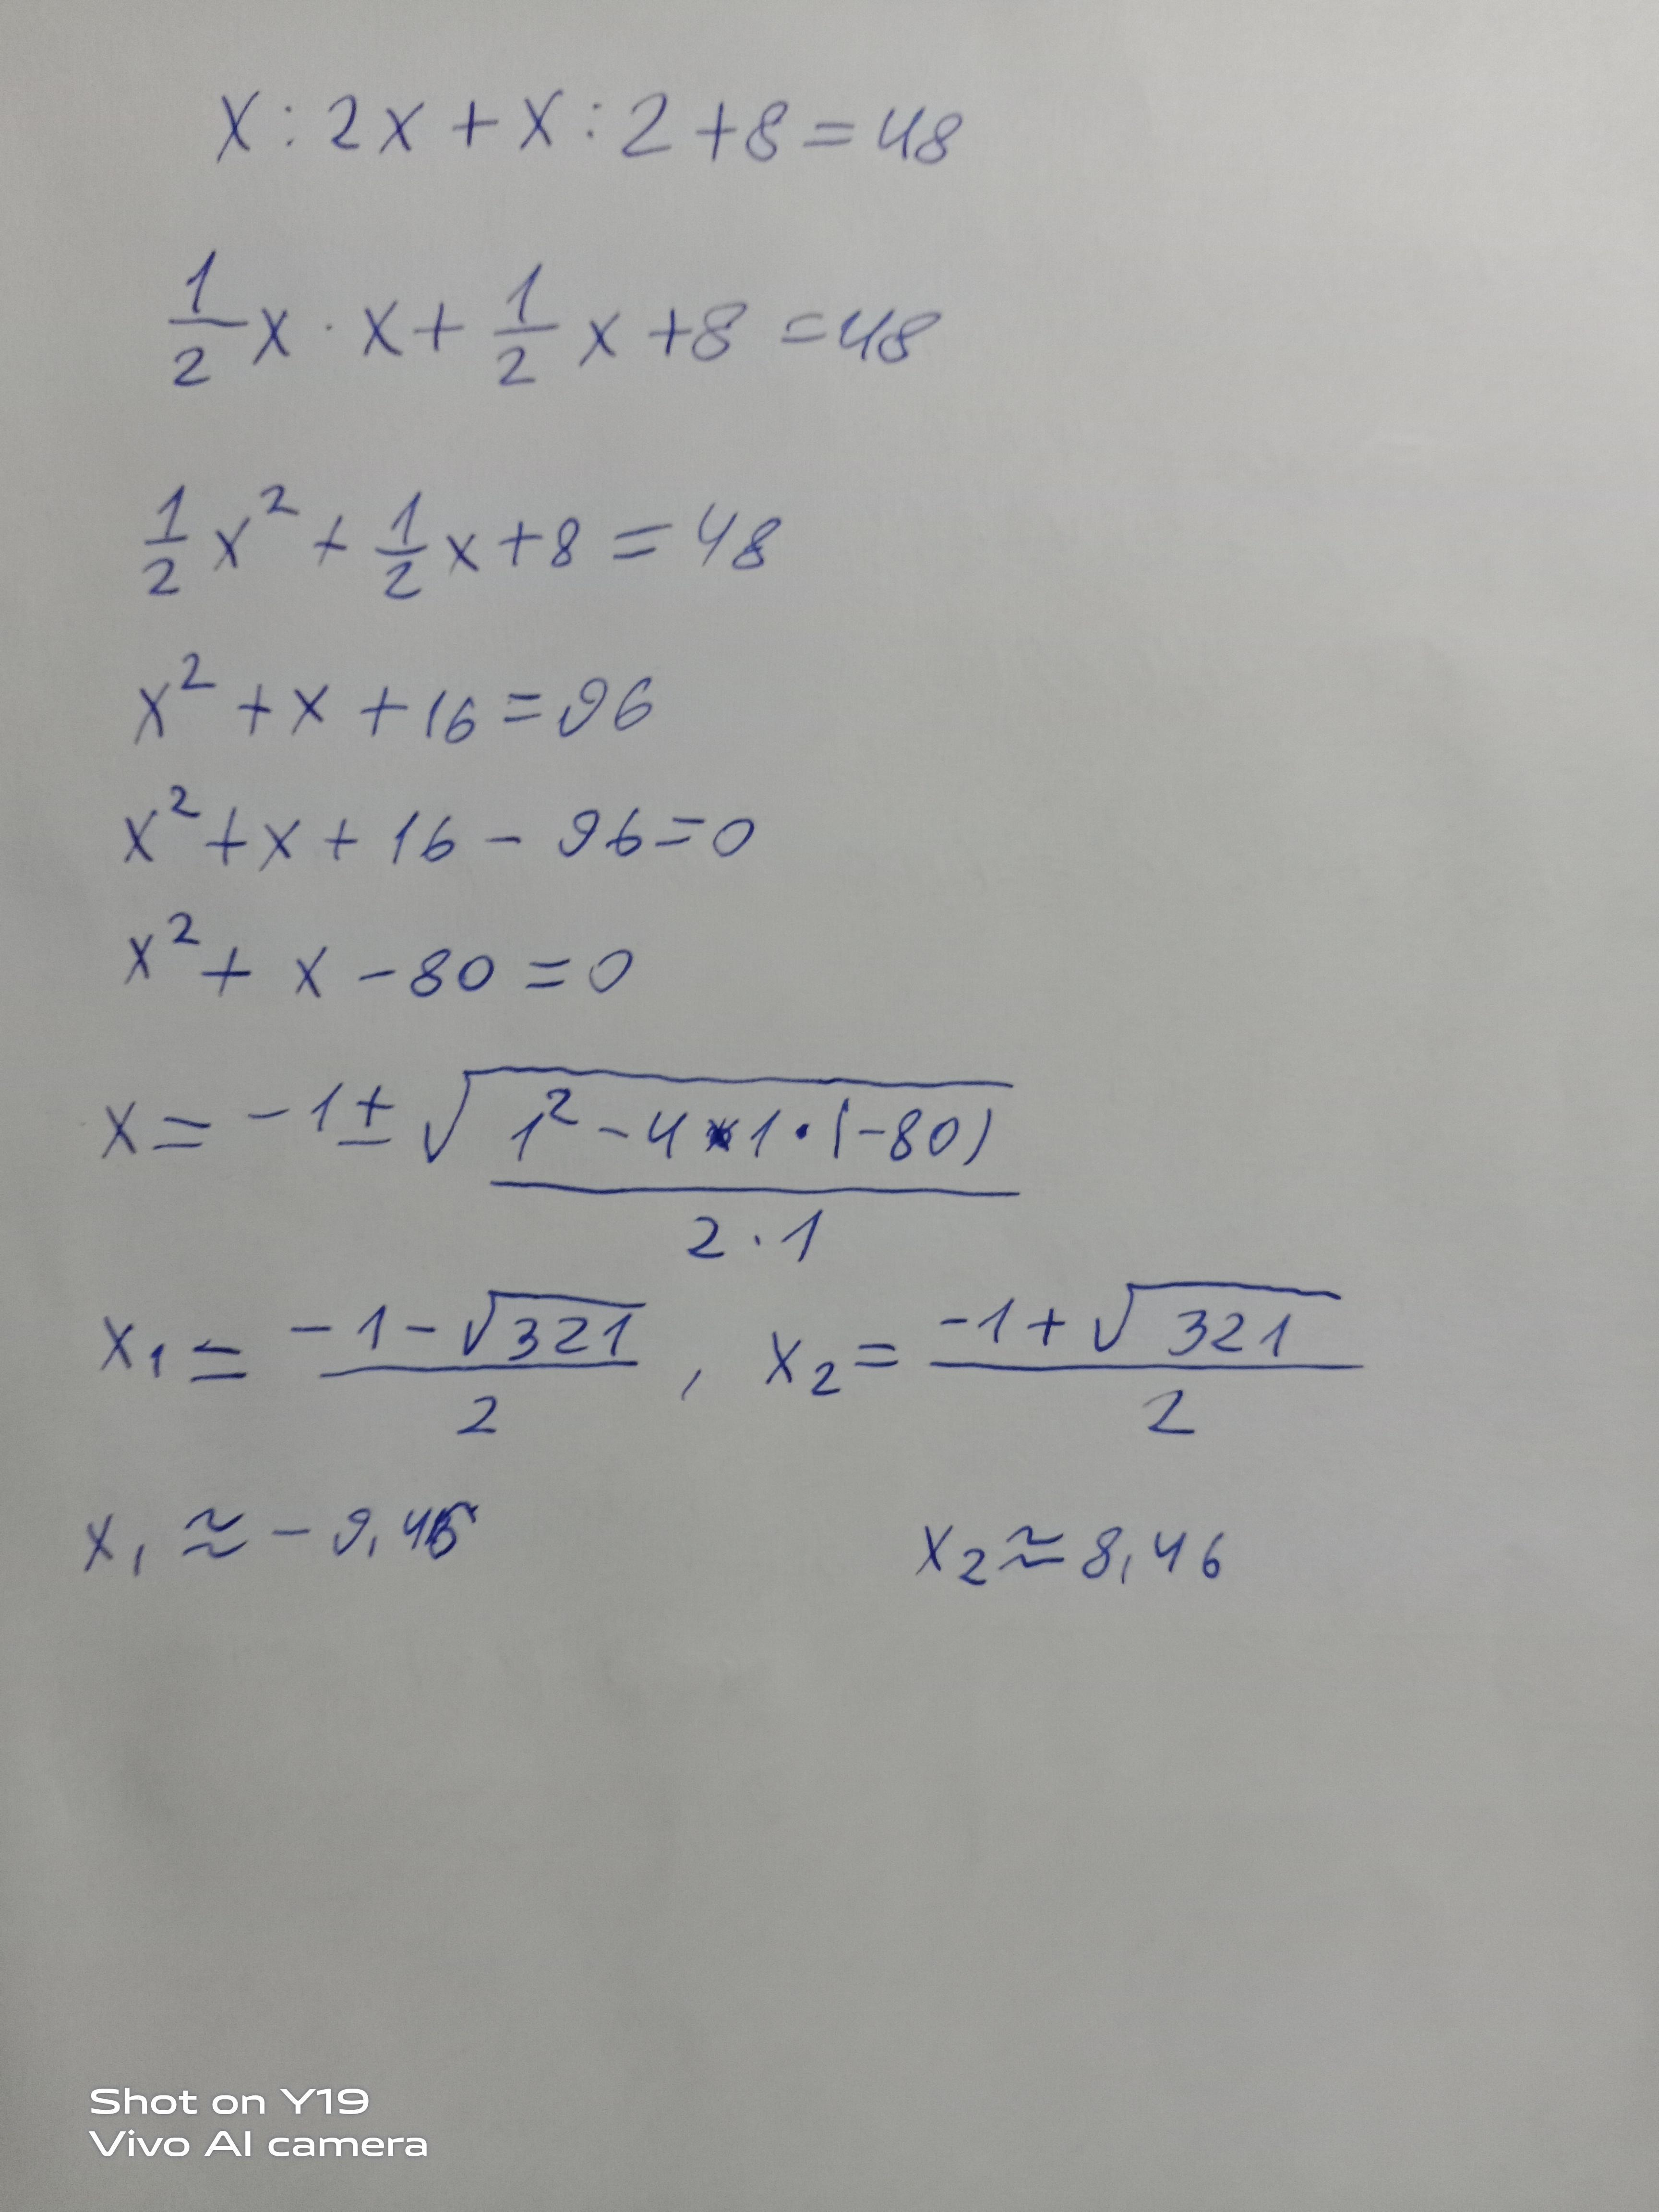 x : 2x + x : 2 + 8 = 48
1/2 x · x + 1/2 x + 8 = 48
1/2 x² + 1/2 x + 8 = 48
x² + x + 16 = 96
x² + x + 16 - 96 = 0
x² + x - 80 = 0
x = -1 ± √(1² - 4 * 1 · (-80)) / 2 · 1
x₁ = (-1 - √321) / 2 , x₂ = (-1 + √321) / 2
x₁ ≈ -9,46 x₂ ≈ 8,46
Shot on Y19
Vivo AI camera